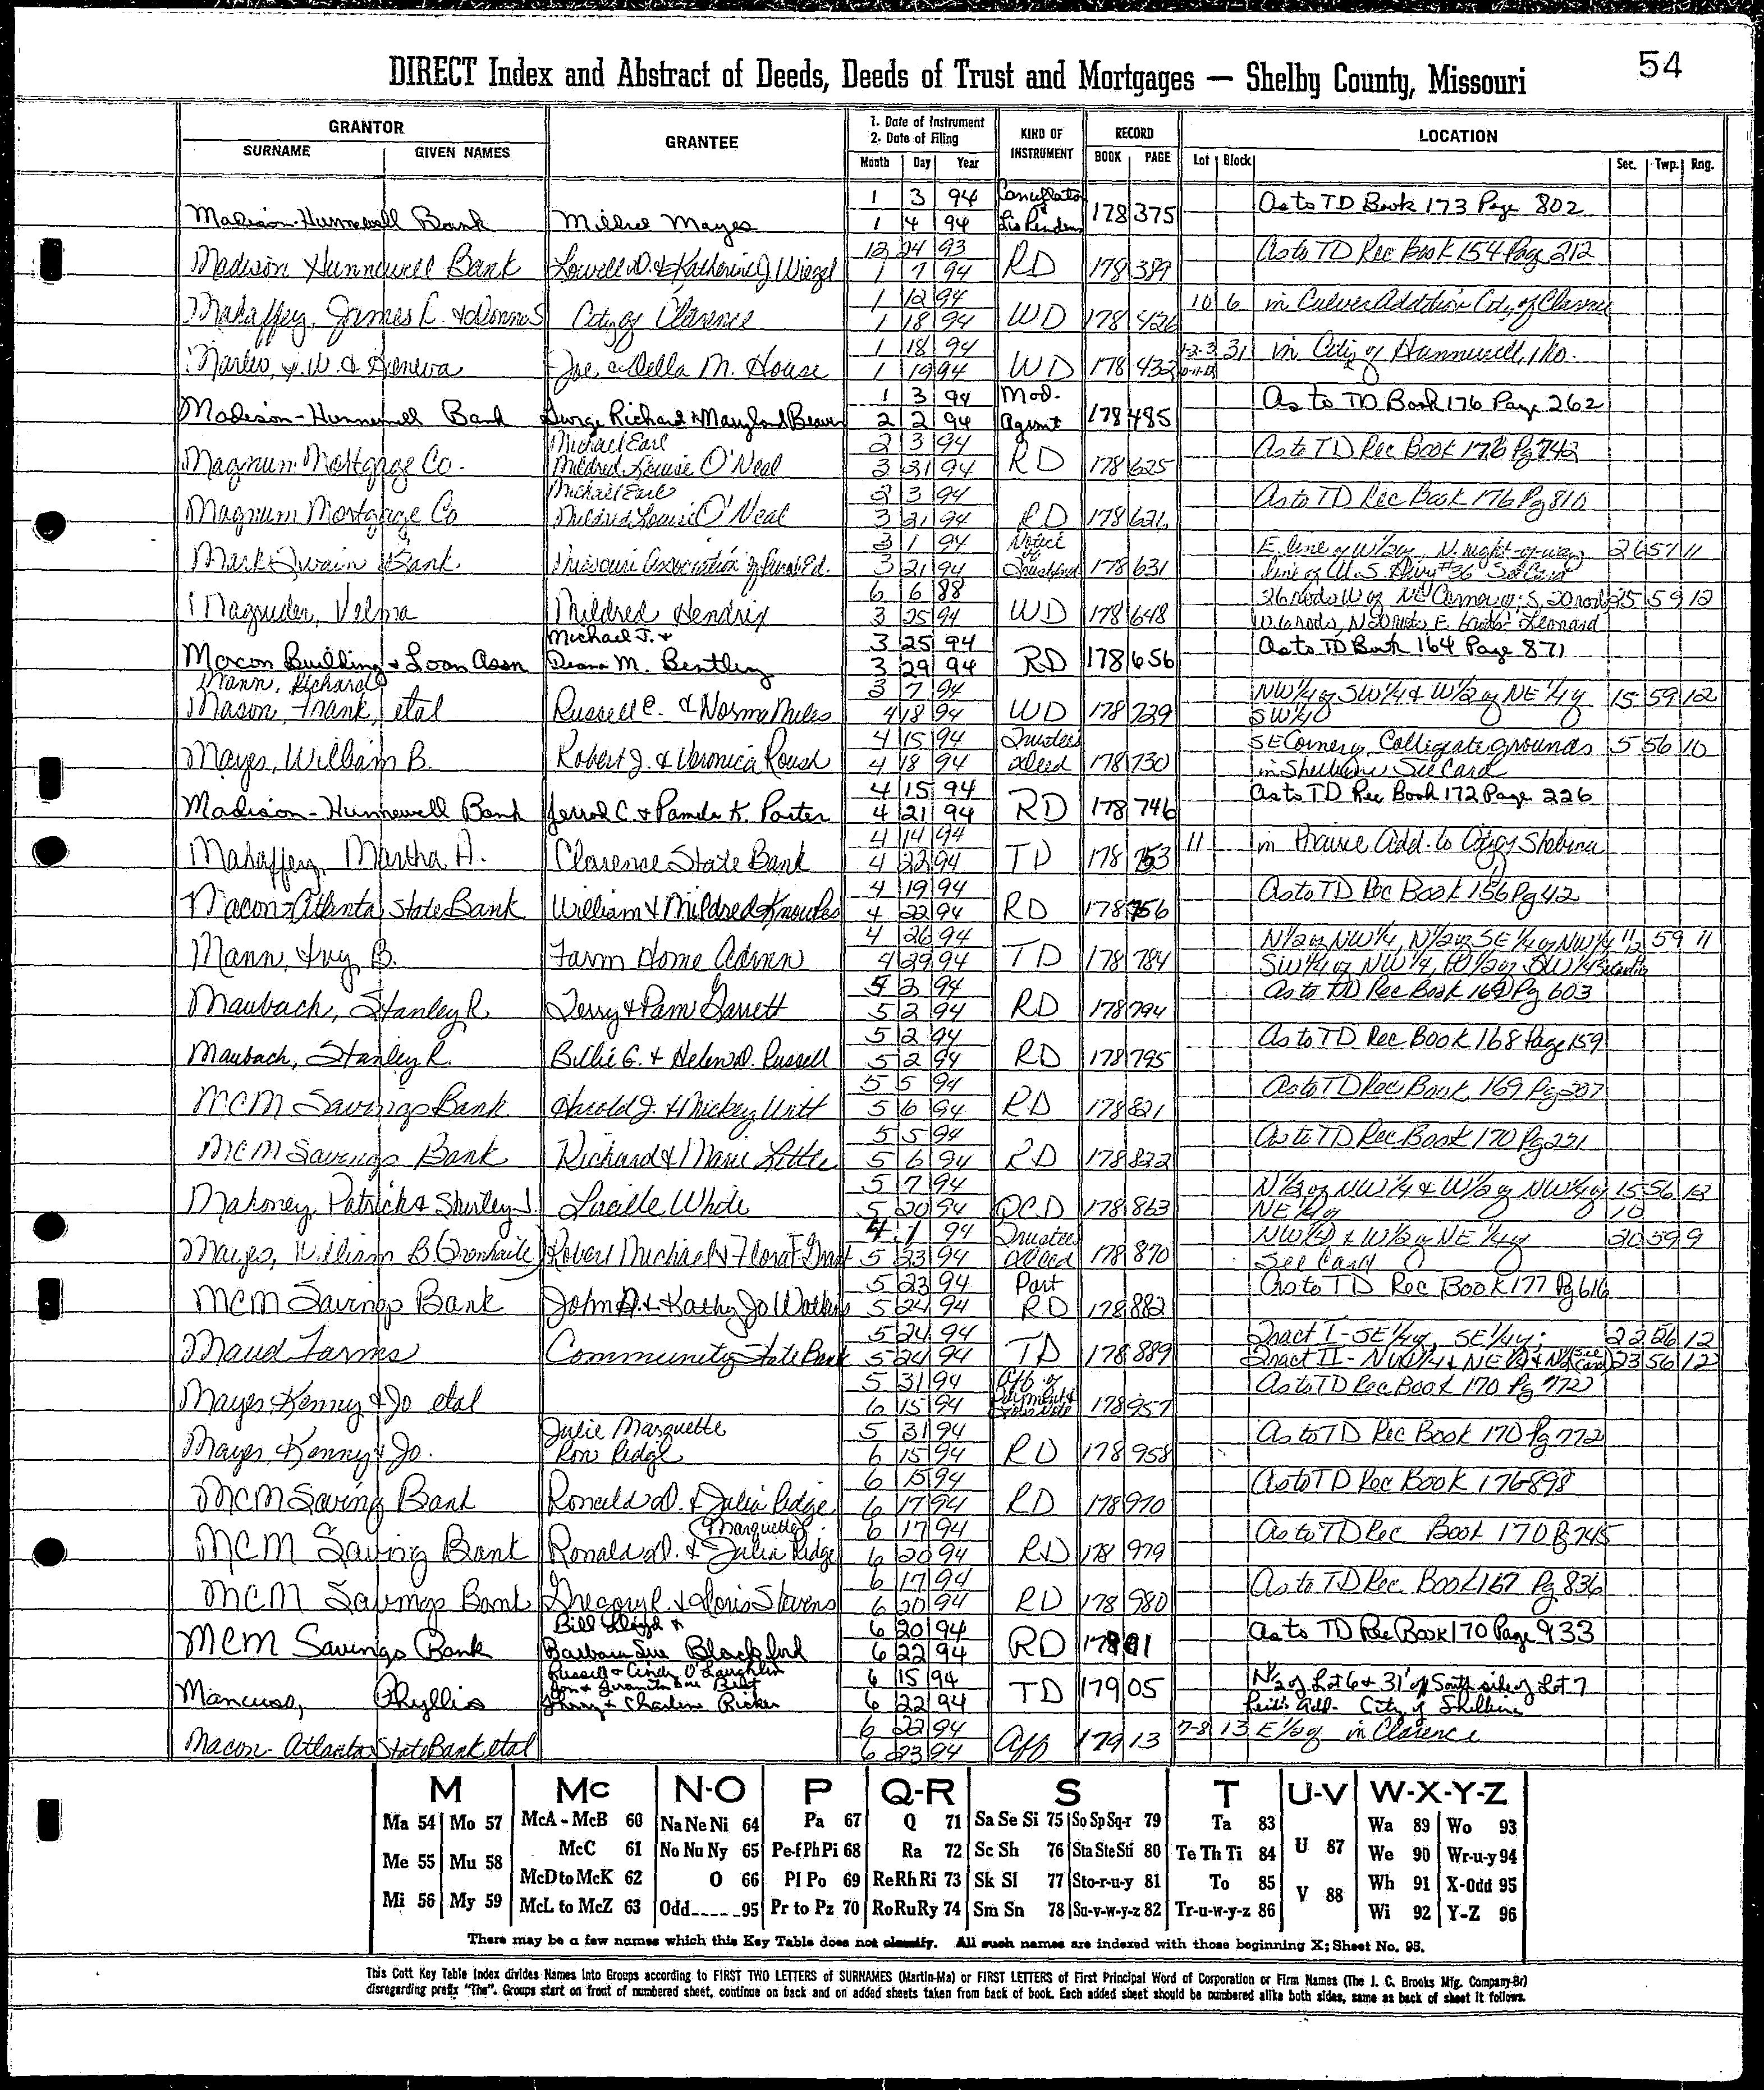 54
DIRECT Index and Abstract of Deeds, Deeds of Trust and Mortgages — Shelby County, Missouri
GRANTOR
SURNAME GIVEN NAMES
GRANTEE
1. Date of Instrument
2. Date of Filing
Month Day Year
KIND OF INSTRUMENT
RECORD
BOOK PAGE
LOCATION
Lot Block Sec. Twp. Rng.
1 3 94 As to TD Book 173 Page 802
Madison-Hunnewell Bank Mayes 1 4 94 Lis Pendens 178 375
12 24 93 As to TD Rec Book 154 Page 212
Madison Hunnewell Bank Lowell D. & Katherine J. 1 7 94 RD 178 389
1 12 94 10 6 in Culver Addition City of Clarence
Mahaffey, James L. & Donna S City of Clarence 1 18 94 WD 178 426
1 18 94 1-2-3 31 in City of Hunnewell, Mo.
& Geneva Joe & Della M. House 1 19 94 WD 178 432
1 3 94 Mod. As to TD Book 176 Page 262
Madison-Hunnewell Bank Richard & Beaver 2 2 94 Agmt 178 485
Michael Earl 2 3 94 As to TD Rec Book 176 Pg 742
Magnum Mortgage Co. Mildred Louise O'Neal 3 21 94 RD 178 625
Michael Earl 2 3 94 As to TD Rec Book 176 Pg 810
Magnum Mortgage Co Mildred Louise O'Neal 3 21 94 RD 178 626
3 1 94 Notice E line of W 1/2 of, N. right-of-way 26 57 11
Mark Twain Bank. Missouri Association of 3 21 94 178 631 line of U.S. Hwy #36 See Card
6 6 88 26 rods W of NE Corner of; S, 20 rods 25 59 12
Magruder, Velma Mildred Hendrix 3 25 94 WD 178 648 W. 6 rods, N 20 rods E. 6 rods Leonard
Michael J. & 3 25 94 As to TD Book 164 Page 871
Macon Building & Loan Assn M. Bentley 3 29 94 RD 178 656
Mann, Richard 3 7 94 NW 1/4 of SW 1/4 & W 1/2 of NE 1/4 of 15 59 12
Mason, Frank, etal Russell E. & Norma Miles 4 18 94 WD 178 729 SW 1/4
4 15 94 Trustees SE Corner of Collegiate grounds 5 56 10
Mayes, William B. Robert J. & Veronica Roush 4 18 94 Deed 178 730 in Shelbina See Card
4 15 94 As to TD Rec Book 172 Page 226
Madison-Hunnewell Bank Jerrod C. & Pamela K. Porter 4 21 94 RD 178 746
4 14 94 11 in Prairie Add. to City of Shelbina
Mahaffey, Martha A. Clarence State Bank 4 22 94 TD 178 753
4 19 94 As to TD Rec Book 156 Pg 42
Macon-Atlanta State Bank William & Mildred Knowles 4 22 94 RD 178 756
4 26 94 N 1/2 of NW 1/4, N 1/2 of SE 1/4 of NW 1/4 59 11
Mann, Ivy B. Farm Home Admn 4 29 94 TD 178 784 SW 1/4 of NW 1/4,
5 2 94 As to TD Rec Book Pg 603
Maubach, Stanley R. Terry & Pam Garrett 5 2 94 RD 178 794
5 2 94 As to TD Rec Book 168 Page 159
Maubach, Stanley R. Billie G. & Helen D. Russell 5 2 94 RD 178 795
5 5 94 As to TD Rec Book 169 Pg 207
MCM Savings Bank Harold J. & Mickey Witt 5 6 94 RD 178 821
5 5 94 As to TD Rec Book 170 Pg 221
MCM Savings Bank Richard & Marie Little 5 6 94 RD 178 822
5 7 94 N 1/2 of NW 1/4 & W 1/2 of NW 1/4 of 15 56 12
Mahoney, Patrick & Shirley J. Lucille White 5 20 94 QCD 178 863 NE 1/4 of 10
4 1 94 Trustees NW 1/4 & W 1/2 of NE 1/4 of 20 59 9
Mayes, William B Robert Michael & Flora F. 5 23 94 Deed 178 870 See Card
5 23 94 Part As to TD Rec Book 177 Pg 616
MCM Savings Bank John A. & Kathy Jo Watkins 5 24 94 RD 178 882
5 24 94 Tract I - SE 1/4 of, SE 1/4 of; 22 56 12
Maud Farms Community State Bank 5 24 94 TD 178 889 Tract II - NW 1/4 & 23 56 12
5 31 94 Aff of As to TD Rec Book 170 Pg 772
Mayes, Kenny & Jo etal 6 15 94 178 957
Julie Marquette 5 31 94 As to TD Rec Book 170 Pg 772
Mayes, Kenny & Jo. Ron Ridge 6 15 94 RD 178 958
6 15 94 As to TD Rec Book 176-898
MCM Saving Bank Ronald D. & Julia Ridge 6 17 94 RD 178 970
(Marquette) 6 17 94 As to TD Rec Book 170 Pg 745
MCM Saving Bank Ronald D. & Julia Ridge 6 20 94 RD 178 979
6 17 94 As to TD Rec Book 167 Pg 836
MCM Savings Bank Gregory R. & Doris Stevens 6 20 94 RD 178 980
Bill Lloyd & 6 20 94 As to TD Rec Book 170 Page 933
MCM Savings Bank Barbara Sue Blackford 6 22 94 RD
Russell & Cindy O'Laughlin 6 15 94 N 1/2 of Lot 6 & 31' of South side of Lot 7
Mancuso, Phyllis & Charlene Ricker 6 22 94 TD 179 05 Add. City of Shelbina
6 22 94 7-8 13 E 1/2 of in Clarence
Macon-Atlanta State Bank etal 6 23 94 Aff 179 13
M Mc N-O P Q-R S T U-V W-X-Y-Z
Ma 54 Mo 57 McA - McB 60 Na Ne Ni 64 Pa 67 Q 71 Sa Se Si 75 So Sp Sq-r 79 Ta 83 Wa 89 Wo 93
McC 61 No Nu Ny 65 Pe-f Ph Pi 68 Ra 72 Sc Sh 76 Sta Ste Sti 80 Te Th Ti 84 U 87 We 90 Wr-u-y 94
Me 55 Mu 58 McD to McK 62 O 66 Pl Po 69 Re Rh Ri 73 Sk Sl 77 Sto-r-u-y 81 To 85 Wh 91 X-Odd 95
Mi 56 My 59 McL to McZ 63 Odd 95 Pr to Pz 70 Ro Ru Ry 74 Sm Sn 78 Su-v-w-y-z 82 Tr-u-w-y-z 86 V 88 Wi 92 Y-Z 96
There may be a few names which this Key Table does not classify. All such names are indexed with those beginning X; Sheet No. 95.
This Cott Key Table Index divides Names into Groups according to FIRST TWO LETTERS of SURNAMES (Martin-Ma) or FIRST LETTERS of First Principal Word of Corporation or Firm Names (The J. C. Brooks Mfg. Company-Br)
disregarding prefix "The". Groups start on front of numbered sheet, continue on back and on added sheets taken from back of book. Each added sheet should be numbered alike both sides, same as back of sheet it follows.